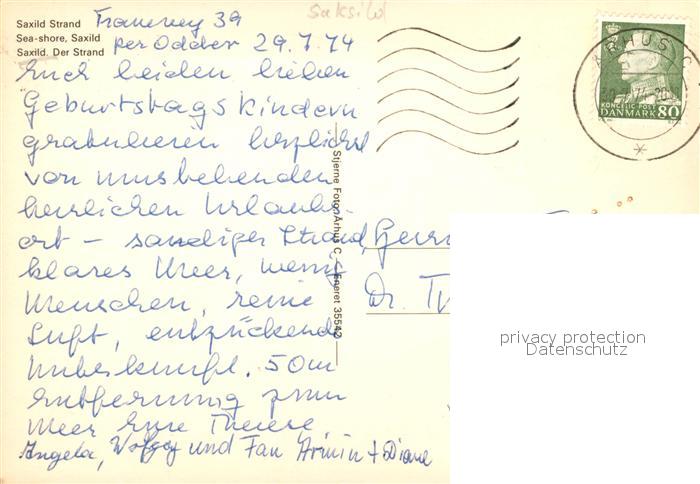 Saxild Strand
Sea-shore, Saxild
Saxild. Der Strand
Saksild
39
per Odder 29.7.74
Euch beiden lieben
Geburtstagskindern
gratulieren herzlichst
von umstehenden
herrlichen Urlaubs-
ort – sandiger Strand,
klares Meer, wenig
Menschen, reine
Luft, entzückende
Unterkunft. 50 m
Entfernung zum
Meer Eure Therese,
Angela, Wolfgang und Fam Armin + Diane
Stjerne Foto, Århus C. – Eneret 35542
ÅRHUS C
30.7.74
KONGELIG POST
DANMARK 80
Dr.
privacy protection
Datenschutz